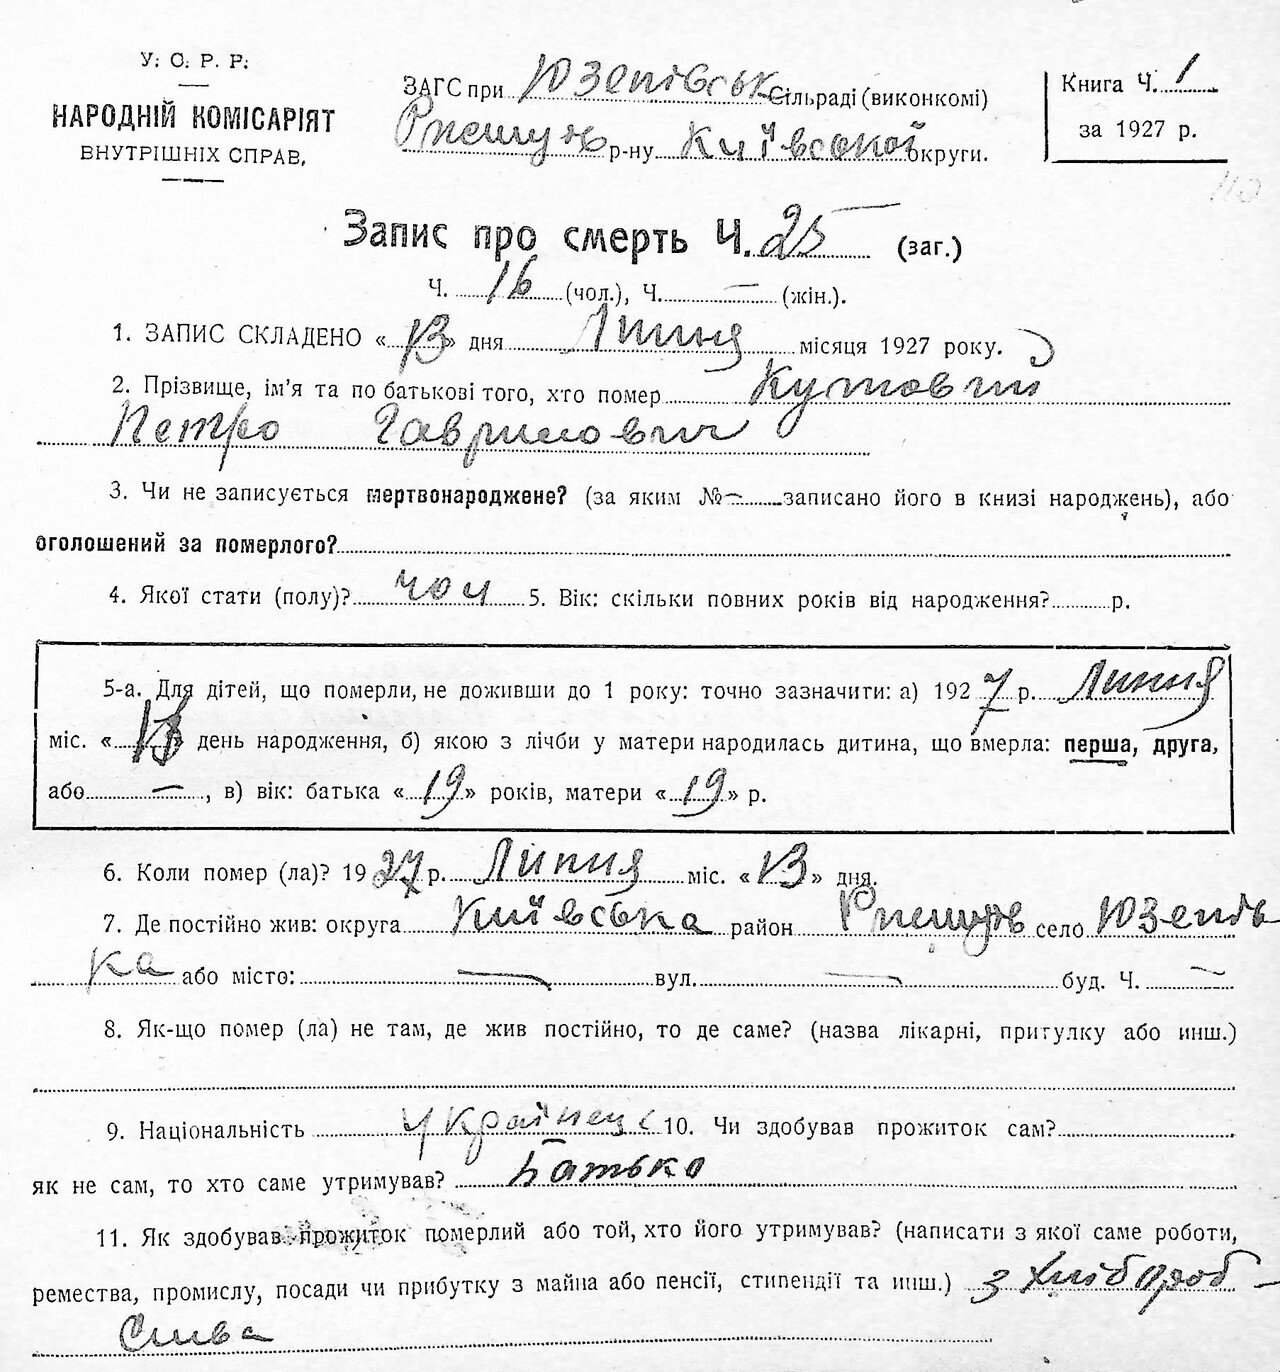 У. С. Р. Р.
НАРОДНІЙ КОМІСАРІЯТ
ВНУТРІШНІХ СПРАВ,
ЗАГС при Юзепівськ Сільраді (виконкомі)
Ржищів р-ну Київської округи.
Книга Ч. 1
за 1927 р.
Запис про смерть Ч. 25 (заг.)
Ч. 16 (чол.), Ч. — (жін.).
1. ЗАПИС СКЛАДЕНО «13» дня Липня місяця 1927 року.
2. Прізвище, ім'я та по батькові того, хто помер Кутовий
Петро Гаврилович
3. Чи не записується мертвонароджене? (за яким № — записано його в книзі народжень), або
оголошений за померлого?
4. Якої стати (полу)? чол 5. Вік: скільки повних років від народження? р.
5-а. Для дітей, що померли, не доживши до 1 року: точно зазначити: а) 1927 р. Липня
міс. «13» день народження, б) якою з лічби у матери народилась дитина, що вмерла: перша, друга,
або —, в) вік: батька «19» років, матери «19» р.
6. Коли помер (ла)? 1927 р. Липня міс. «13» дня.
7. Де постійно жив: округа Київська район Ржищів село Юзепів-
ка або місто: — вул. — буд. Ч. —
8. Як-що помер (ла) не там, де жив постійно, то де саме? (назва лікарні, притулку або инш.)
9. Національність українец 10. Чи здобував прожиток сам?
як не сам, то хто саме утримував? Батько
11. Як здобував прожиток померлий або той, хто його утримував? (написати з якої саме роботи,
ремества, промислу, посади чи прибутку з майна або пенсії, стипендії та инш.) з хлібороб-
ства